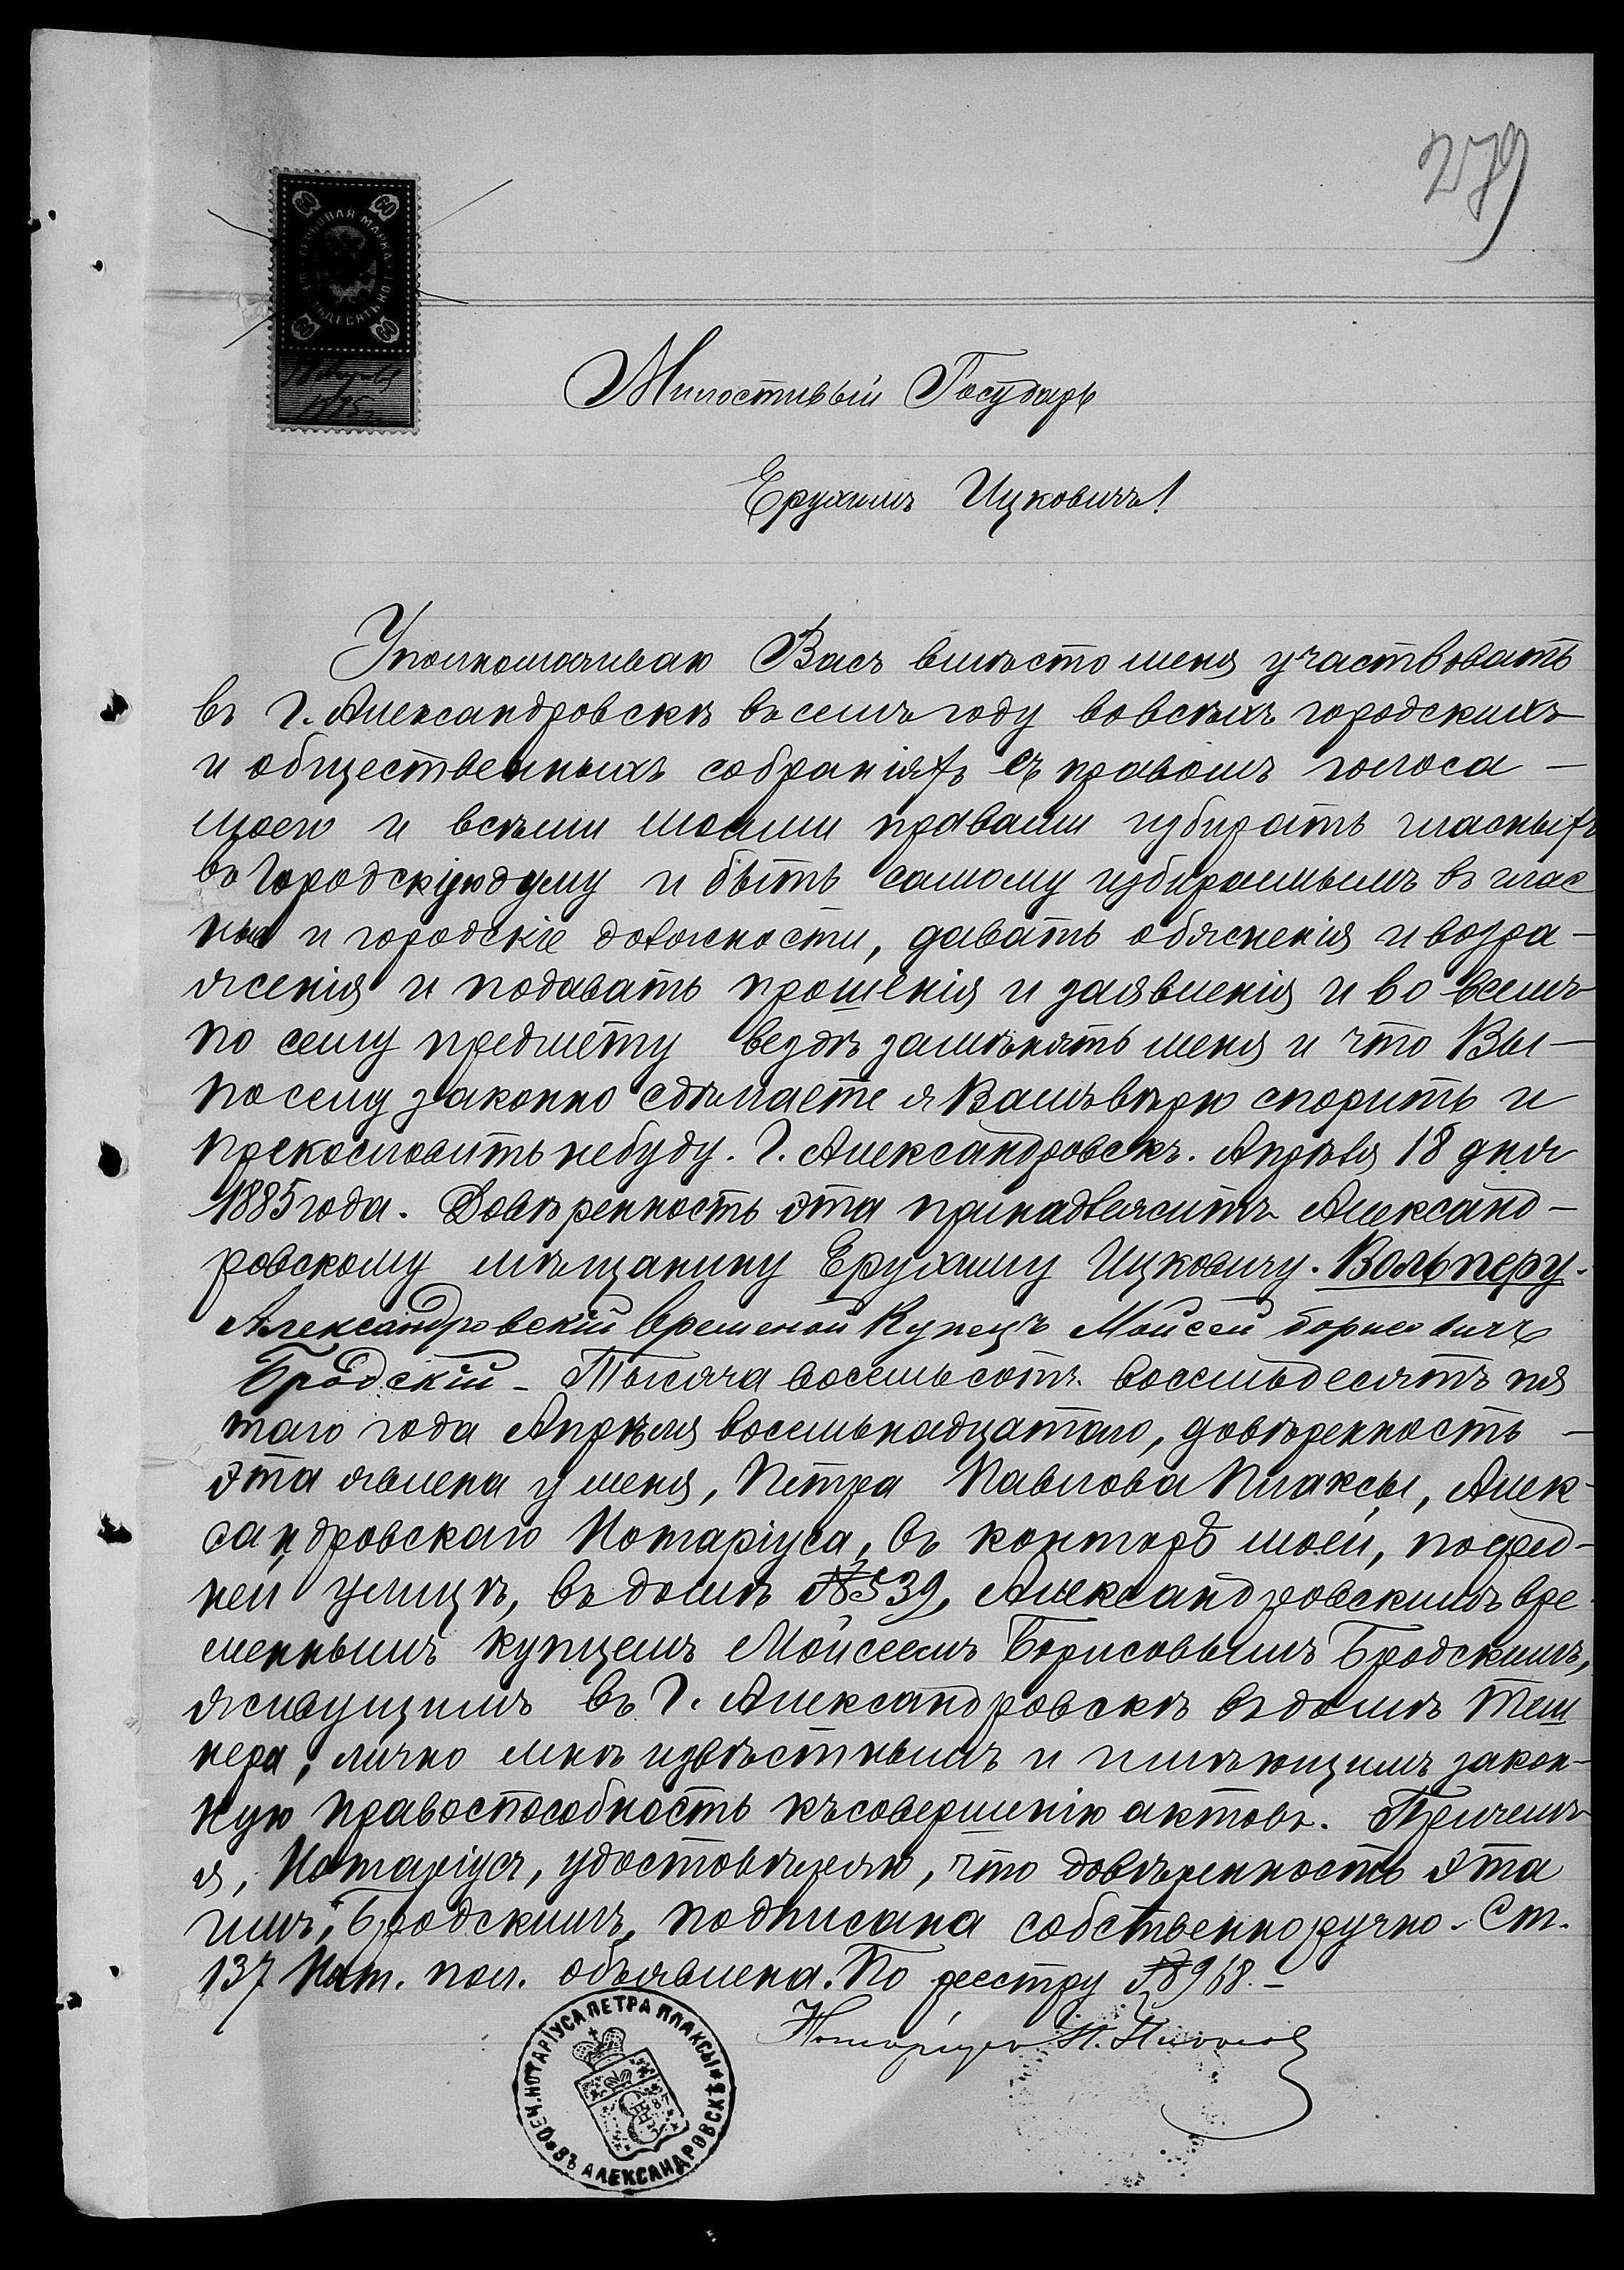 279
ГЕРБОВАЯ МАРКА
60 60
60 60
18 Апрѣля
1885 г.
Милостивый Государь
Ерухимъ Ицковичъ!
Уполномачиваю Васъ вмѣсто меня участвовать
въ Г. Александровскѣ въ семъ году вовсѣхъ городскихъ
и общественныхъ собраніяхъ съ правомъ голоса —
моего и всѣми моими правами избирать гласныхъ
въ Городскую думу и быть самому избираемымъ въ глас
ные и городскіе должности, давать обясненія и возра-
женія и подавать прошенія и заявленія и во всемъ
по сему предмету вездѣ замѣнять меня и что Вы —
по сему законно сдѣлаете я Вамъ вѣрю спорить и
прекословить небуду. Г. Александровскъ. Апрѣля 18 дня
1885 года. Довѣренность эта принадлежитъ Александ-
ровскому мѣщанину Ерухиму Ицковичу. Вольперу.
Александровскій временой Купецъ Мойсей борисовичъ
Бродскій — Тысяча восемьсотъ восемьдесятъ пя
таго года Апрѣля восемьнадцатаго, довѣренность —
эта явлена у меня, Петра Павлова Плаксы, Алек-
сандровскаго Нотаріуса, въ конторѣ моей, по сред-
ней улицѣ, въ домѣ № 39, Александровскимъ вре-
меннымъ купцемъ Мойсеемъ Борисовымъ Бродскимъ,
живущимъ въ Г. Александровскѣ въ домѣ Теш
нера, лично мнѣ извѣстнымъ и имѣющимъ закон-
ную правоспособность къ совершенію актовъ. Причемъ
я, Нотаріусъ, удостовѣряю, что довѣренность эта
имъ, Бродскимъ, подписана собственноручно. Ст.
137 Нот. пол. объявлена. По реестру № 968. —
Нотаріусъ П. Плакса
ПЕЧ. НОТАРІУСА ПЕТРА ПЛАКСЫ * ВЪ АЛЕКСАНДРОВСКѢ *